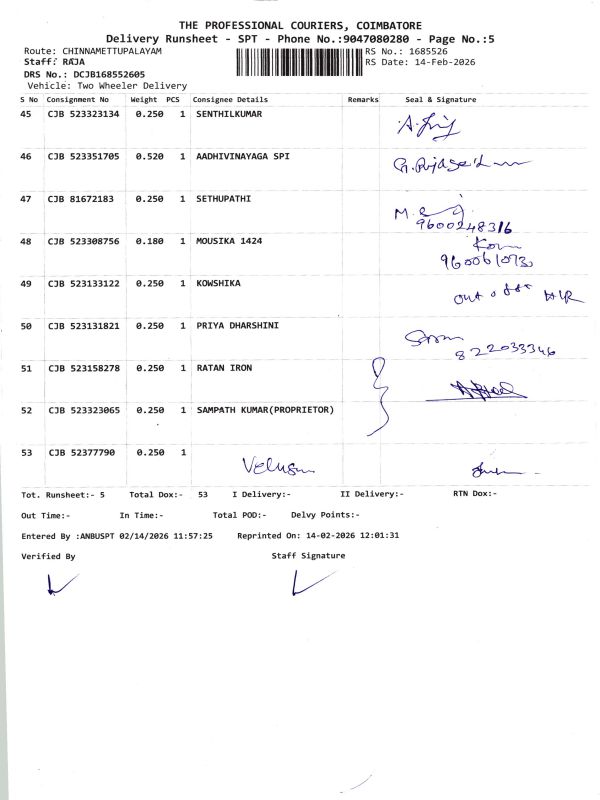 THE PROFESSIONAL COURIERS, COIMBATORE
Delivery Runsheet - SPT - Phone No.:9047080280 - Page No.:5
Route: CHINNAMETTUPALAYAM RS No.: 1685526
Staff: RAJA RS Date: 14-Feb-2026
DRS No.: DCJB168552605
Vehicle: Two Wheeler Delivery
S No Consignment No Weight PCS Consignee Details Remarks Seal & Signature
45 CJB 523323134 0.250 1 SENTHILKUMAR
46 CJB 523351705 0.520 1 AADHIVINAYAGA SPI
47 CJB 81672183 0.250 1 SETHUPATHI
9600248316
48 CJB 523308756 0.180 1 MOUSIKA 1424
49 CJB 523133122 0.250 1 KOWSHIKA
out of
50 CJB 523131821 0.250 1 PRIYA DHARSHINI
822033346
51 CJB 523158278 0.250 1 RATAN IRON
52 CJB 523323065 0.250 1 SAMPATH KUMAR(PROPRIETOR)
53 CJB 52377790 0.250 1
Tot. Runsheet:- 5 Total Dox:- 53 I Delivery:- II Delivery:- RTN Dox:-
Out Time:- In Time:- Total POD:- Delvy Points:-
Entered By :ANBUSPT 02/14/2026 11:57:25 Reprinted On: 14-02-2026 12:01:31
Verified By Staff Signature